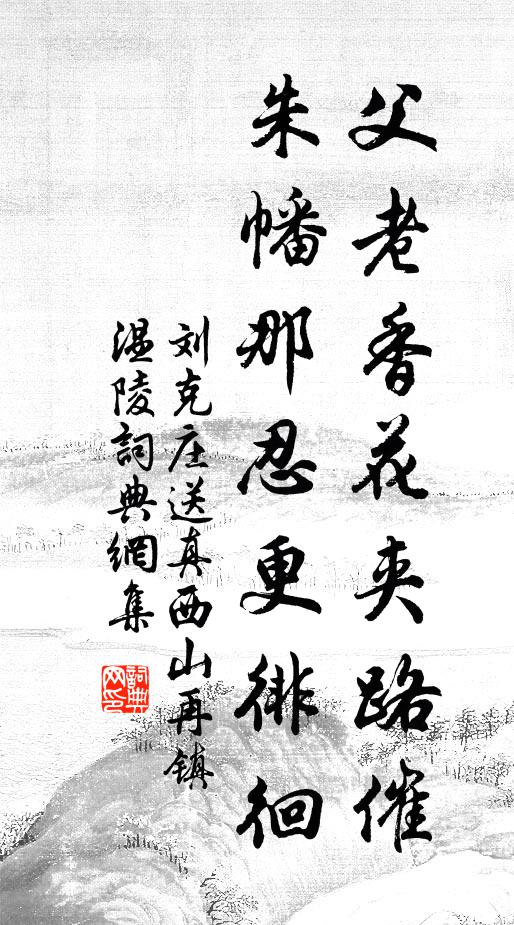 父老香花夹路催
朱幡那忍更徘徊
刘克庄送真西山再镇
温陵詞典網集
詞典
网印